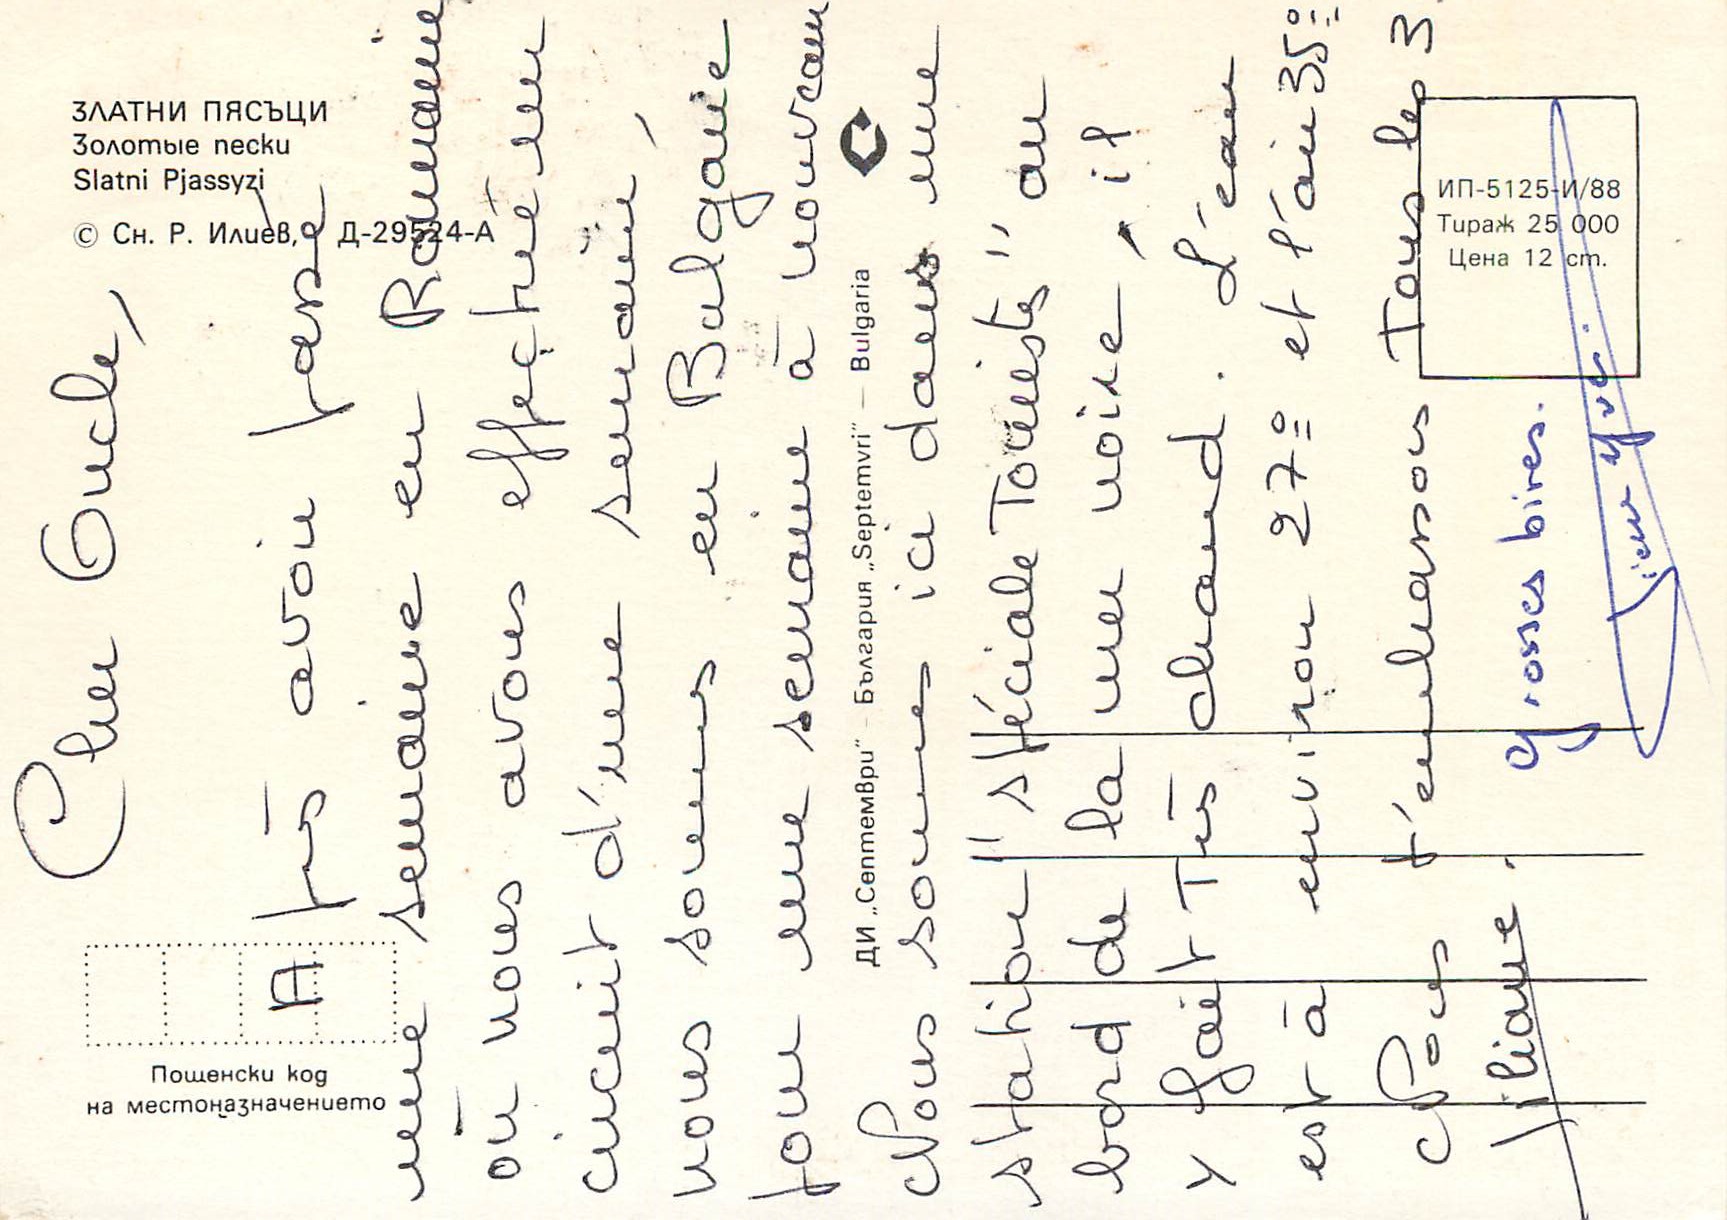 ЗЛАТНИ ПЯСЪЦИ
Золотые пески
Slatni Pjassyzi
© Сн. Р. Илиев, Д-29524-А
Пощенски код
на местоназначението
ДИ „Септември" – България „Septemvri" – Bulgaria
ИП-5125-И/88
Тираж 25 000
Цена 12 ст.
Cher Oncle,
Après avoir passé
une semaine en Roumanie
où nous avons effectué un
circuit d'une semaine,
nous sommes en Bulgarie
pour une semaine à nouveau
Nous sommes ici dans une
station "spéciale Touriste" au
bord de la mer noire, il
y fait Très chaud. L'eau
est à environ 27° et l'air 35°
Nous t'embrassons Tous les 3
Liliane.
grosses bises.